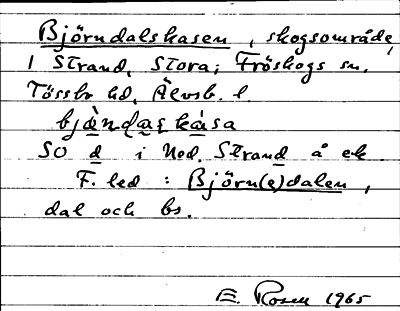 Björndalskasen, skogsområde,
i Strand, Stora; Fröskogs sn.
Tössbo hd, Älvsb. l.
bjǟndaʂkàsa
SO d i Ned. Strand å ek
F. led : Björn(e)dalen,
dal och bs.
E. Rosen 1965